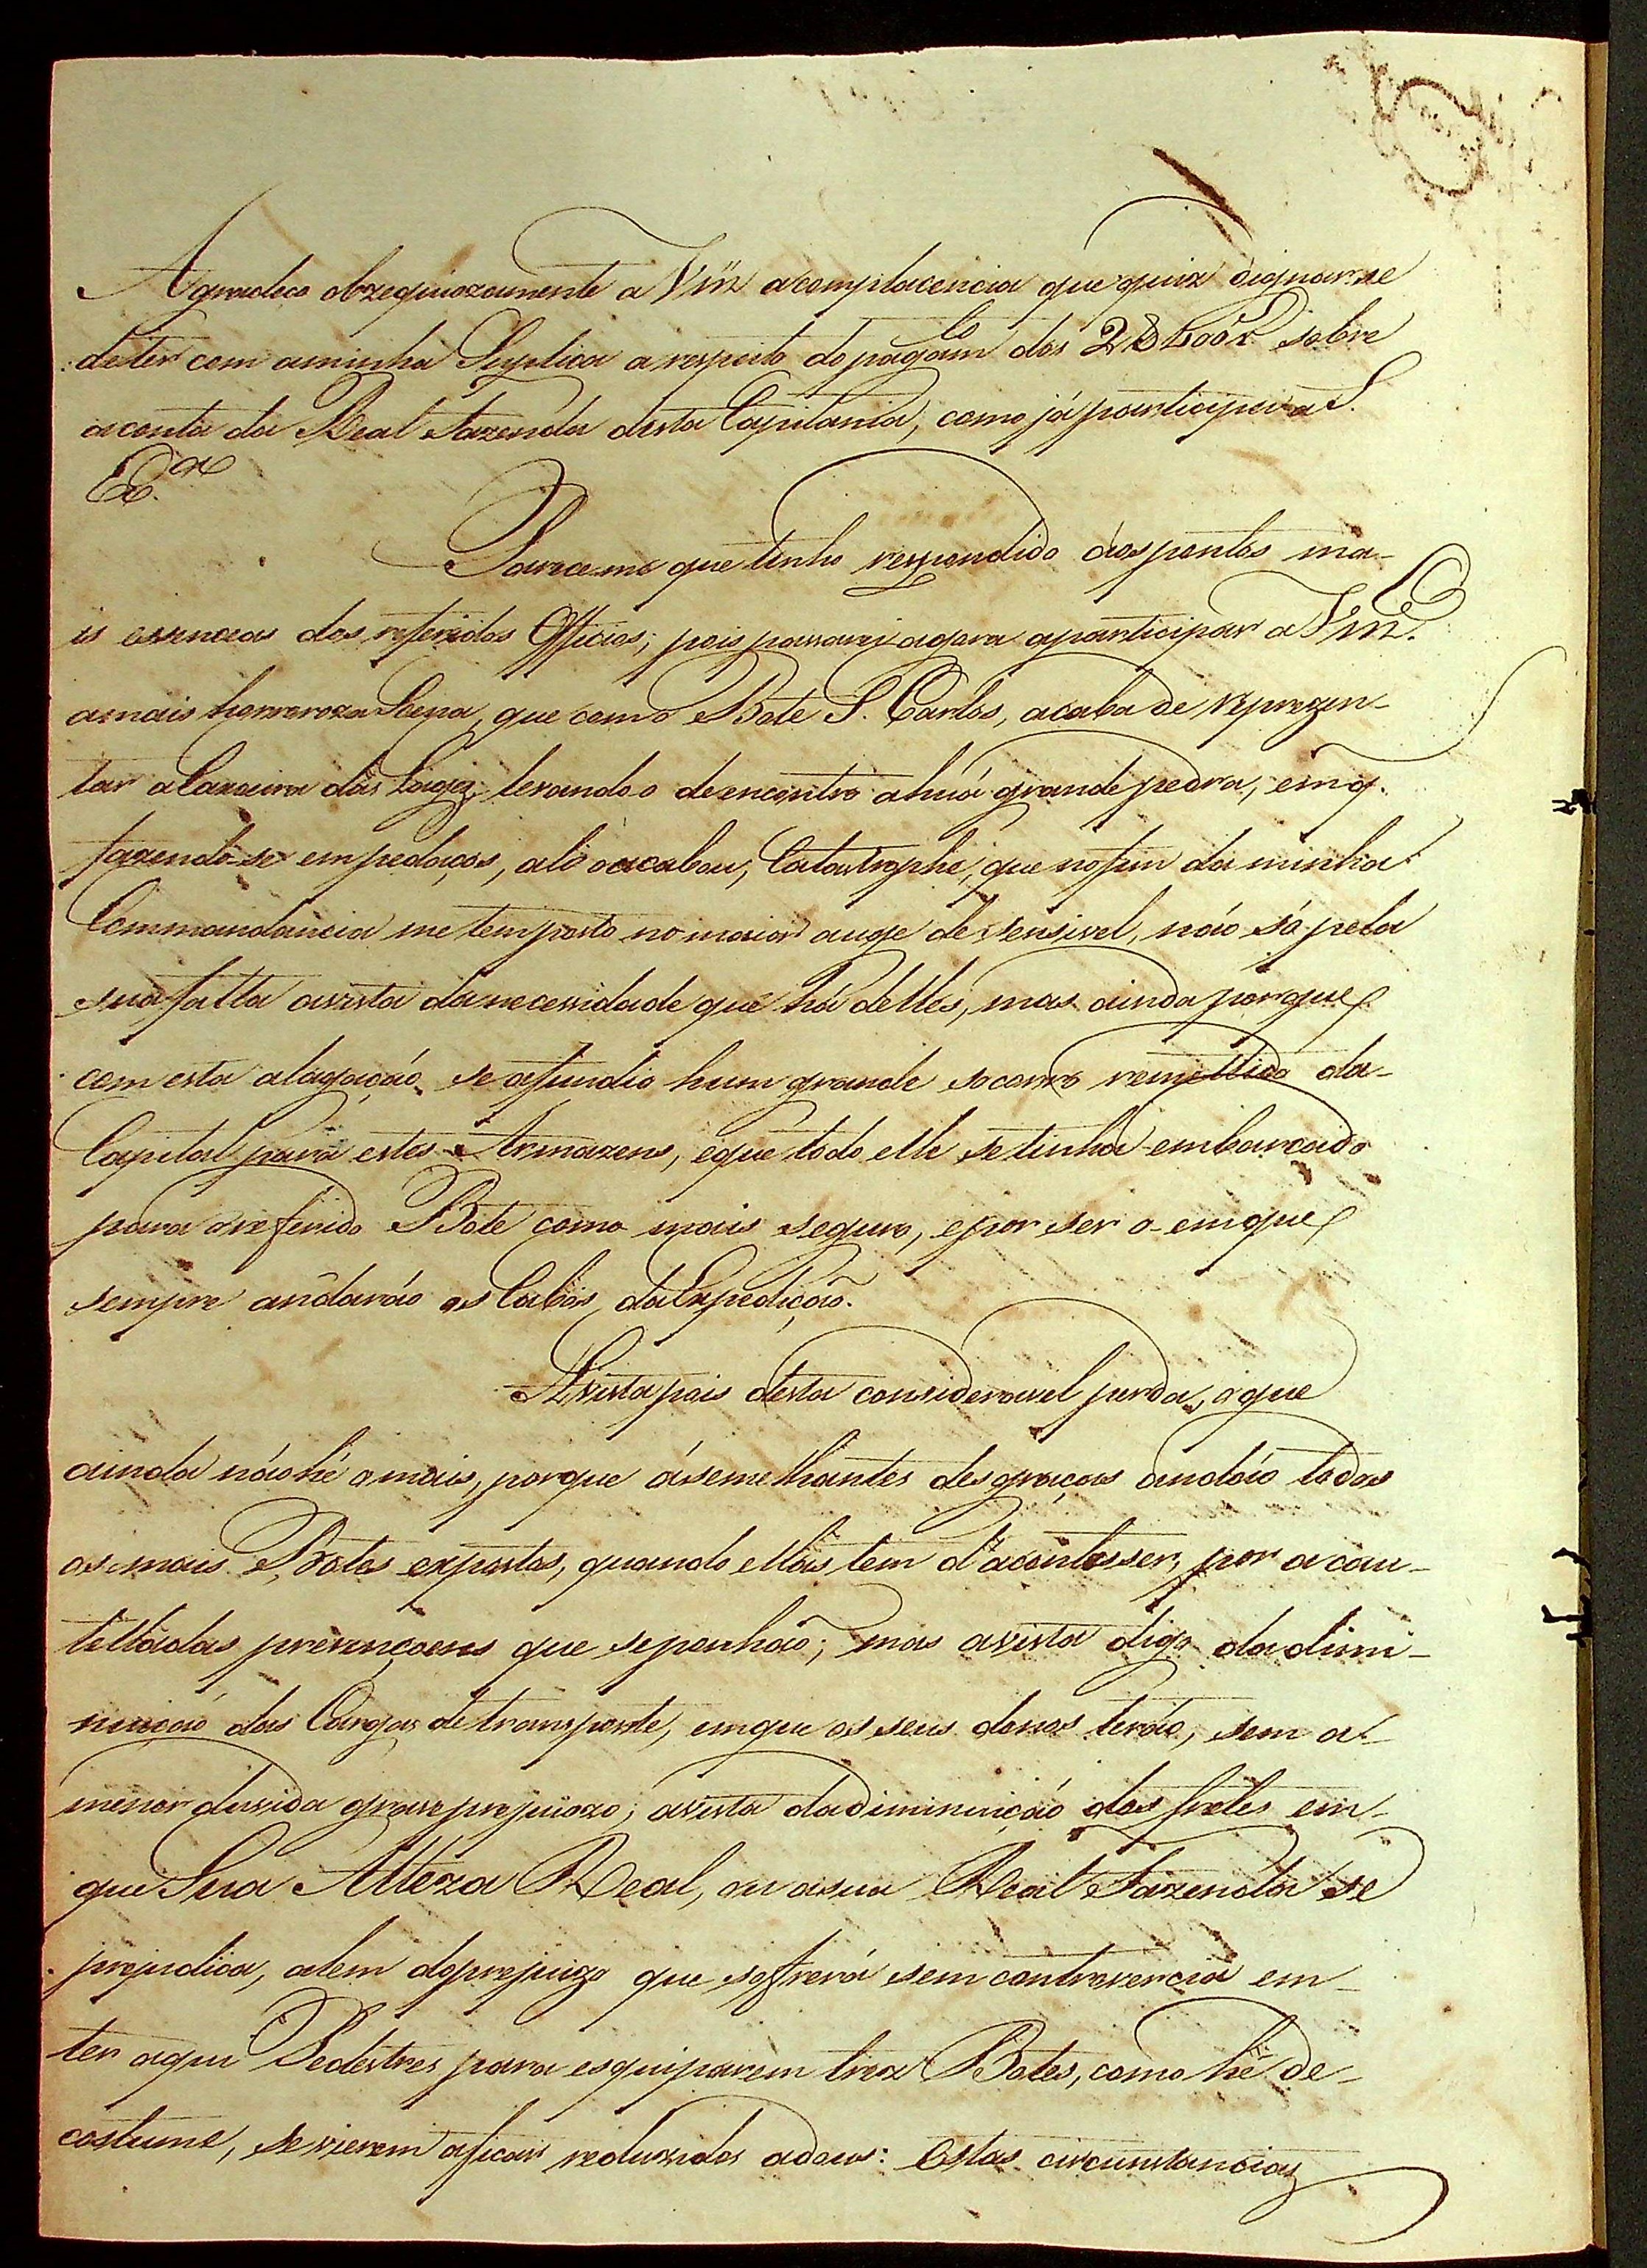 Agradeco obzequiozamente a Vm̃z acomplacencia que quiz dignar-se
deter com aminha Suplica a respeito dopagam.to dos 28$600 r.s sobre
aconta da Real Fazenda desta Capitania, como já participei a S.
Ex.a
Parece-me que tenho respondido áos pontos ma-
is essenceas dos referidos Officios; pois passarei agora aparticipar a Vm.ce
amais horroroza Scena, que com o Bote S. Carlos, acaba de reprezen-
tar a Caxoeira das Lages, levando-o deencontro ahuã grande pedra, em q.
fazendo-se em pedaços, ali oacabou, Catastrophe, que nofim da minha
Commandancia me tem posto no maior auge de sensivel, não só pela
sua falta avista danecessidade que há delles, mas ainda porque
com esta alagação se afundio hum grande socorro remettido da-
Capital para estes Armazens, eque todo elle se tinha embarcado
para oreferido Bote como mais seguro, epor ser o-emque
sempre andaráo os Cabos da Expedição.
Avista pois desta consideravel perda, o que
ainda não hé omais, porque ásemelhantes desgraças andáo todos
os mais Botes expostos, quando ellas tem d'acontesser, por acau-
telladas prevençoens que seponhão; mas avista digo dadimi-
nuiçaó das Cargas detransporte, emque os seus donos teráo, sem a-
menor duvida grave prejuizo; avista dadiminuição dos fretes em-
que Sua Alteza Real, ou asua Real Fazenda se
prejudica, alem doprejuizo que sofrerá sem contravercia em-
ter aqui Pedestres para esquiparem trez Botes, como hé de-
costume, se vierem aficar reduzidos adous: Estas circunstancias